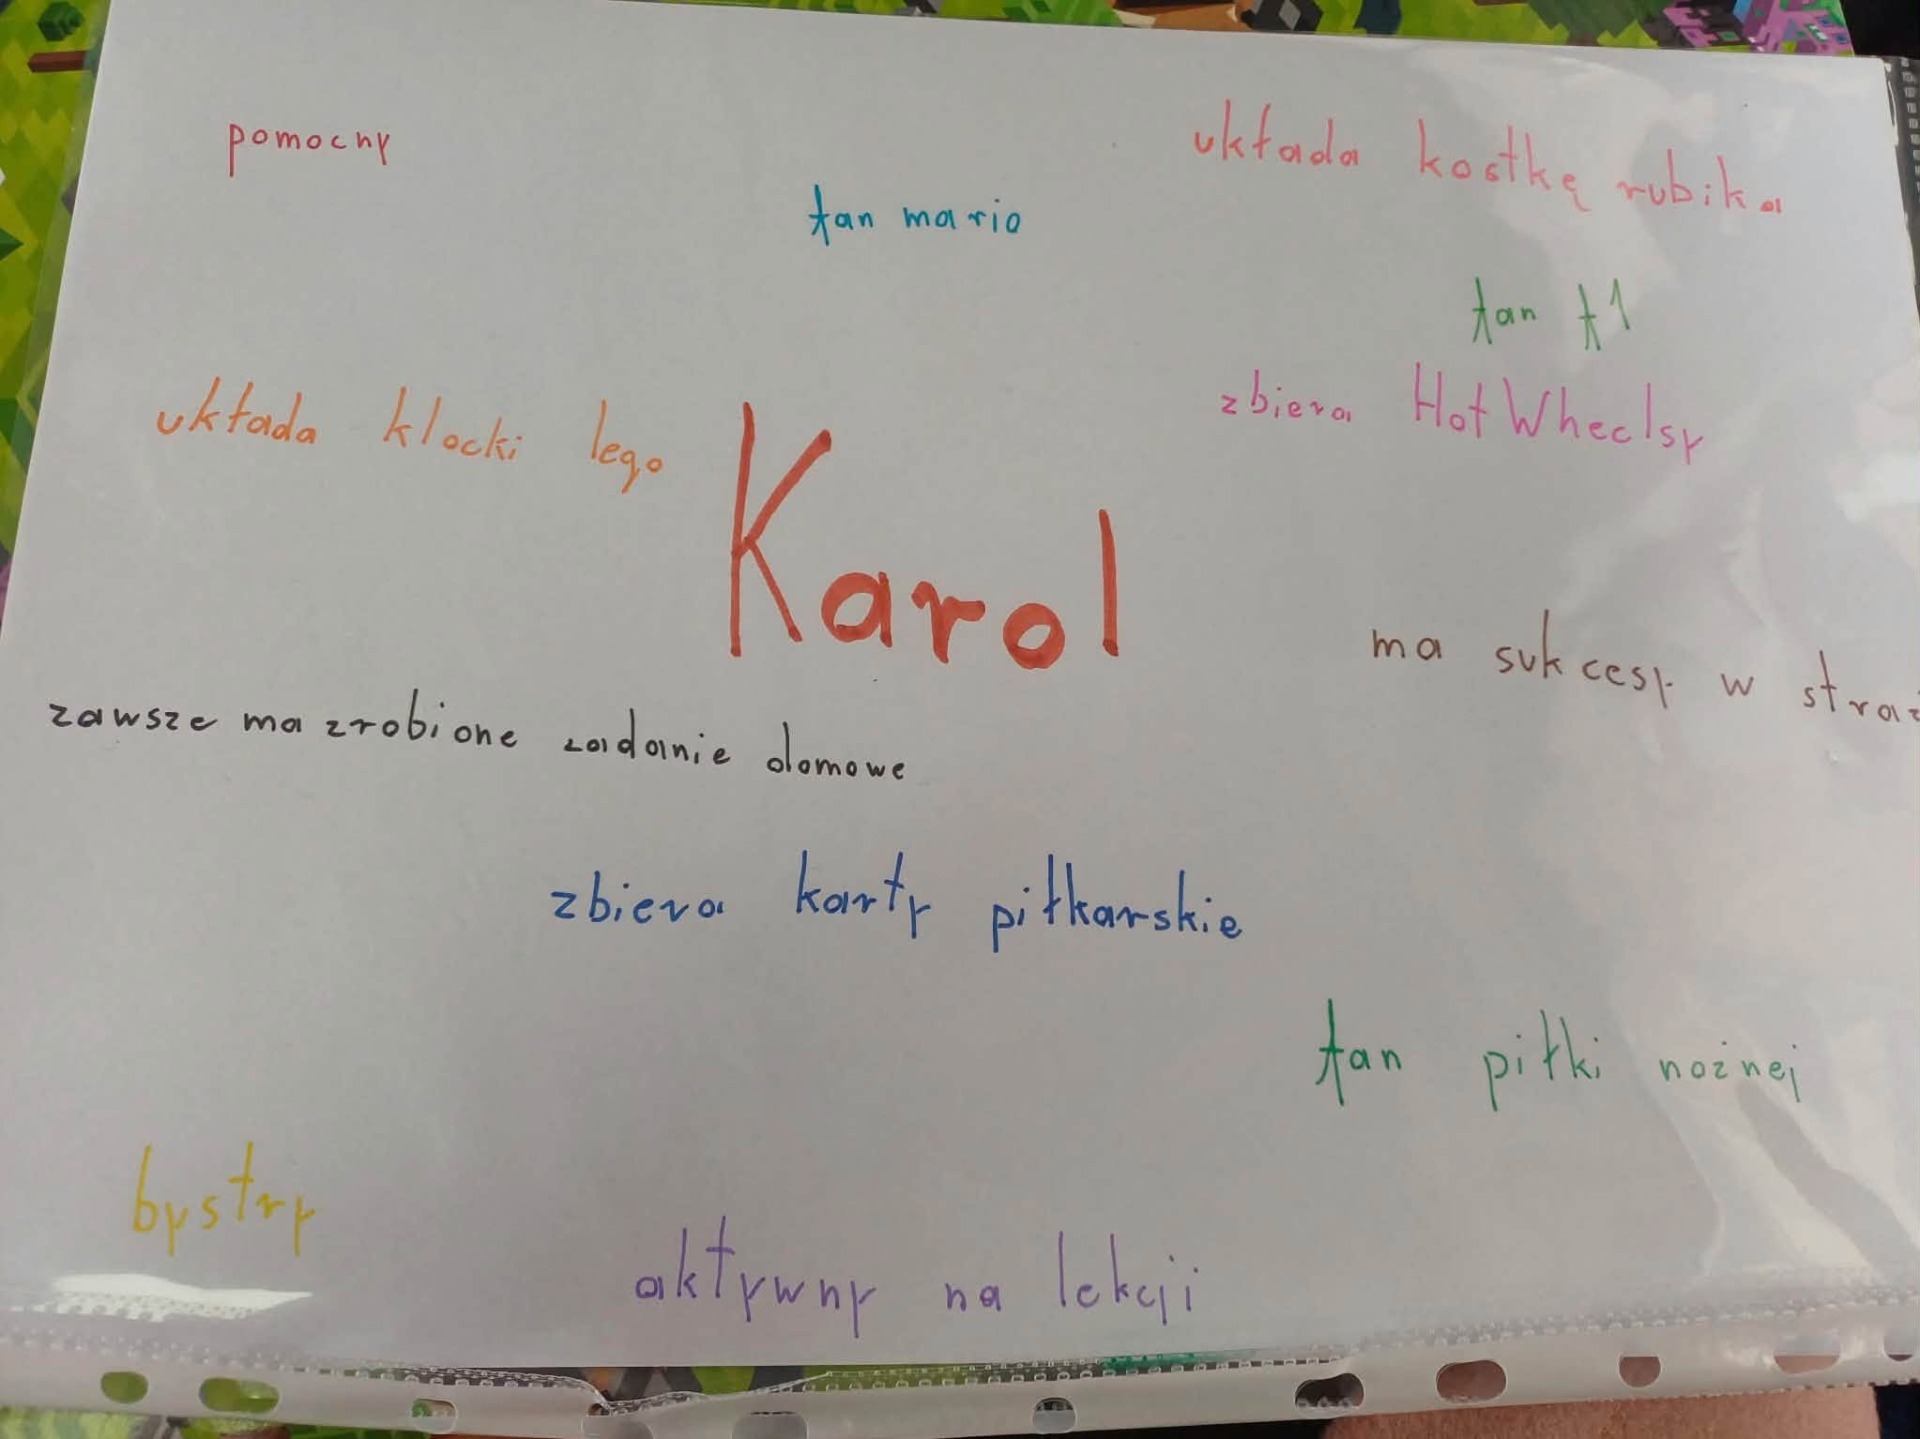 pomocny
układa kostkę rubika
fan mario
fan f1
zbiera Hot Wheelsy
układa klocki lego
Karol
ma sukcesy w straż
zawsze ma zrobione zadanie domowe
zbiera karty piłkarskie
fan piłki nożnej
bystry
aktywny na lekcji